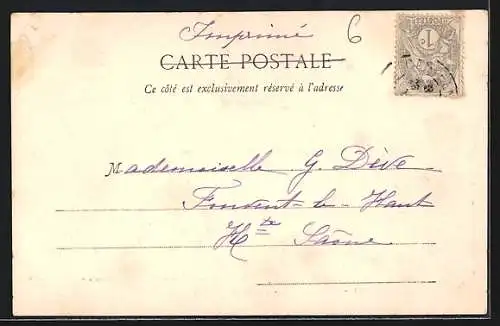 Imprimé 6
CARTE POSTALE
Ce côté est exclusivement réservé à l'adresse
Mademoiselle G. Dève
Fouvent-le-Haut
Hte Saône